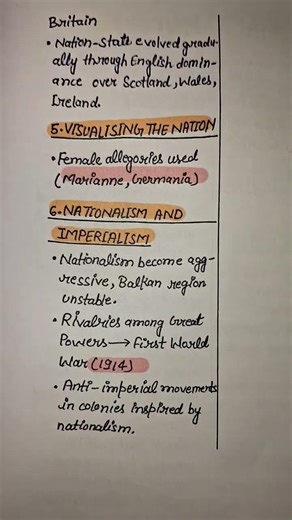 Britain
• Nation-State evolved gradu-
ally through English domin-
ance over Scotland, Wales,
Ireland.
5. VISUALISING THE NATION
• Female allegories used
(Marianne, Germania)
6. NATIONALISM AND
IMPERIALISM
• Nationalism become agg-
ressive, Balkan region
unstable.
• Rivalries among Great
Powers → First World
War (1914)
• Anti-imperial movements
in colonies inspired by
nationalism.